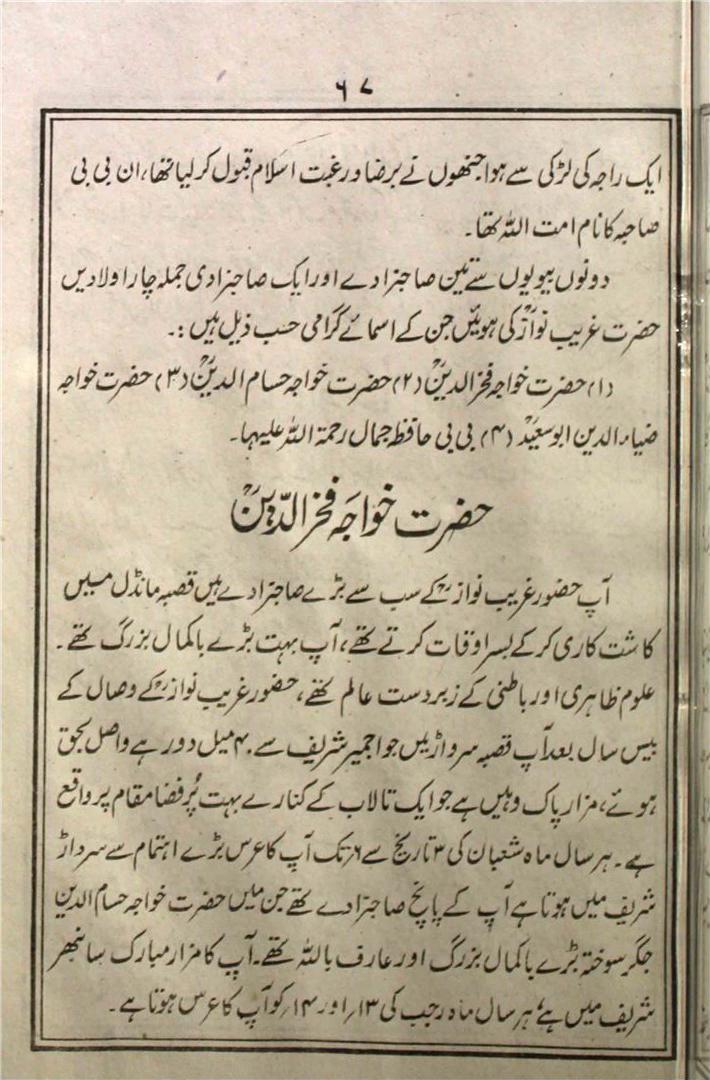 ۶۷
ایک راجہ کی لڑکی سے ہوا جنھوں نے برضا ورغبت اسلام قبول کرلیا تھا، ان بی بی
صاحبہ کا نام امت اللہ تھا۔
دونوں بیویوں سے تین صاحبزادے اور ایک صاحبزادی جملہ چار اولادیں
حضرت غریب نوازؒ کی ہوئیں جن کے اسمائے گرامی حسب ذیل ہیں :۔
(۱) حضرت خواجہ فخرالدینؒ (۲) حضرت خواجہ حسام الدینؒ (۳) حضرت خواجہ
ضیاء الدین ابوسعیدؒ (۴) بی بی حافظہ جمال رحمۃ اللہ علیہا۔
حضرت خواجہ فخرالدّینؒ
آپ حضور غریب نوازؒ کے سب سے بڑے صاحبزادے ہیں قصبہ مانڈل میں
کاشت کاری کرکے بسر اوقات کرتے تھے، آپ بہت بڑے باکمال بزرگ تھے۔
علوم ظاہری اور باطنی کے زبردست عالم تھے، حضور غریب نوازؒ کے وصال کے
بیس سال بعد آپ قصبہ سرواڑ میں جو اجمیر شریف سے ۴۰ میل دور ہے واصل بحق
ہوئے، مزار پاک وہیں ہے جو ایک تالاب کے کنارے بہت پُرفضا مقام پر واقع
ہے۔ ہر سال ماہ شعبان کی ۳ تاریخ سے ۶ تک آپ کا عرس بڑے اہتمام سے سرداڑ
شریف میں ہوتا ہے آپ کے پانچ صاحبزادے تھے جن میں حضرت خواجہ حسام الدین
جگر سوختہ بڑے باکمال بزرگ اور عارف باللہ تھے۔ آپ کا مزار مبارک سانبھر
شریف میں ہے، ہر سال ماہ رجب کی ۱۳؍ اور ۱۴؍ کو آپ کا عرس ہوتا ہے۔